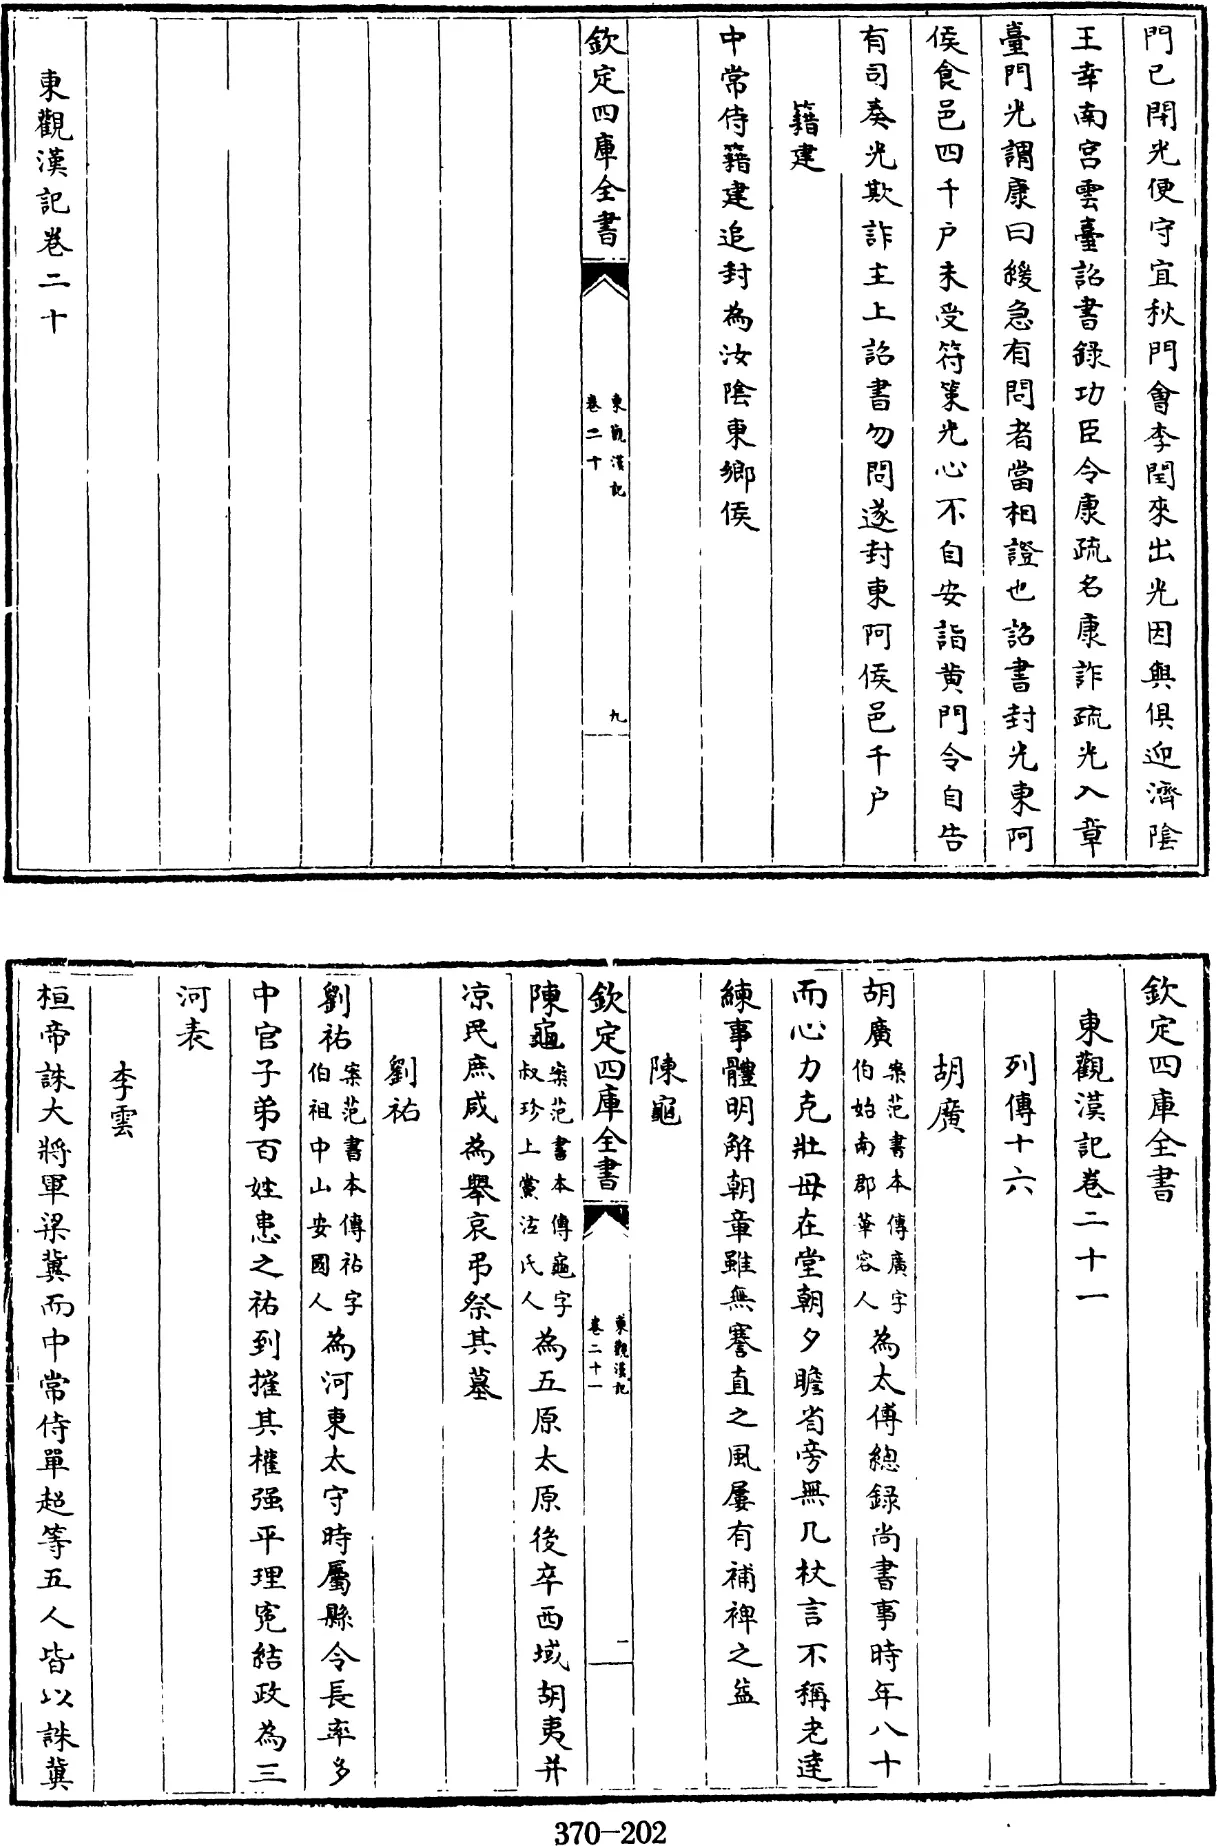 門已閉光便守宜秋門會李閏來出光因與俱迎濟陰
王幸南宮雲臺詔書錄功臣令康疏名康詐疏光入章
臺門光謂康曰緩急有問者當相證也詔書封光東阿
侯食邑四千户未受符策光心不自安詣黄門令自告
有司奏光欺詐主上詔書勿問遂封東阿侯邑千户
籍建
中常侍籍建追封為汝陰東鄉侯
欽定四庫全書
東觀漢記
卷二十
九
東觀漢記卷二十
欽定四庫全書
東觀漢記卷二十一
列傳十六
胡廣
胡廣案范書本傳廣字伯始南郡華容人為太傅總錄尚書事時年八十
而心力克壯母在堂朝夕瞻省旁無几杖言不稱老逹
練事體明解朝章雖無謇直之風屢有補裨之益
陳龜
欽定四庫全書
東觀漢記
卷二十一
一
陳龜案范書本傳龜字叔珍上黨泫氏人為五原太原後卒西域胡夷并
凉民庶咸為舉哀弔祭其墓
劉祐
劉祐案范書本傳祐字伯祖中山安國人為河東太守時屬縣令長率多
中官子弟百姓患之祐到摧其權强平理寃結政為三
河表
李雲
桓帝誅大將軍梁冀而中常侍單超等五人皆以誅冀
370-202